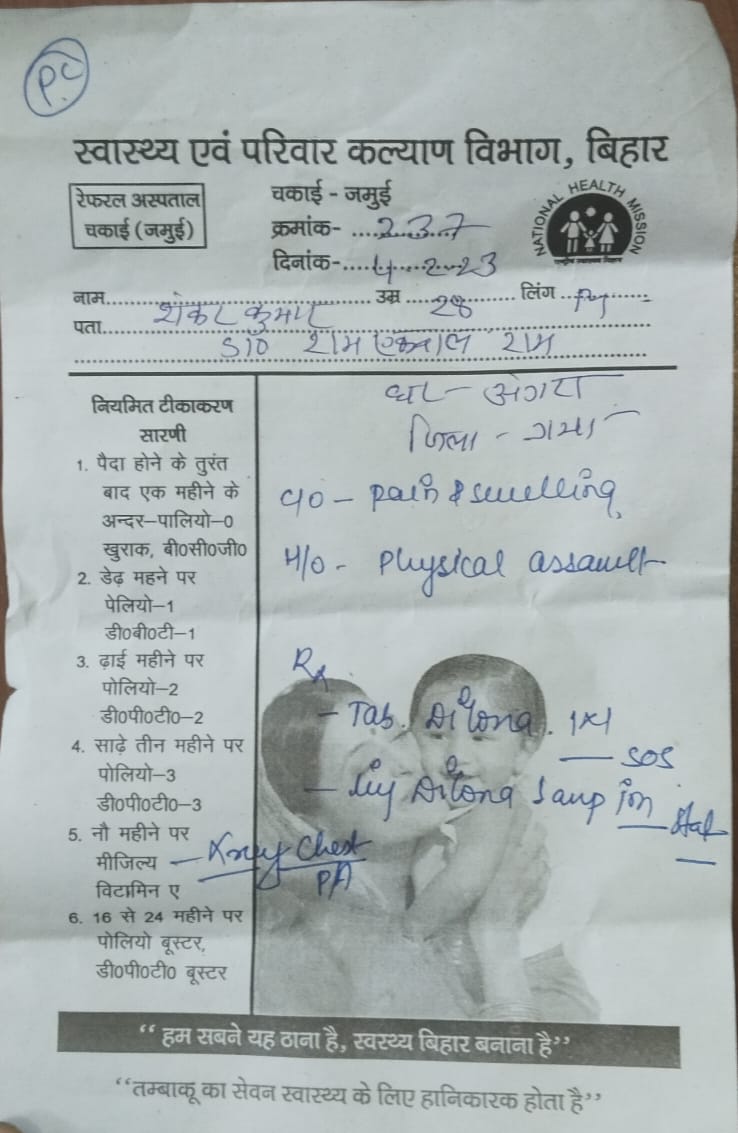 P.C
स्वास्थ्य एवं परिवार कल्याण विभाग, बिहार
रेफरल अस्पताल
चकाई (जमुई)
चकाई - जमुई
क्रमांक- ....237
दिनांक-....4.2.23
NATIONAL HEALTH MISSION
नाम....शंकर कुमार....उम्र....28....लिंग....M....
पता....S/o राम एकवाल राम
घर -
जिला - गया
नियमित टीकाकरण
सारणी
1. पैदा होने के तुरंत
बाद एक महीने के
अन्दर–पालियो–0
खुराक, बी0सी0जी0
2. डेढ़ महने पर
पेलियो–1
डी0बी0टी–1
3. ढ़ाई महीने पर
पोलियो–2
डी0पी0टी0–2
4. साढ़े तीन महीने पर
पोलियो–3
डी0पी0टी0–3
5. नौ महीने पर
मीजिल्य
विटामिन ए
6. 16 से 24 महीने पर
पोलियो बूस्टर,
डी0पी0टी0 बूस्टर
C/O - Pain & swelling
H/O - Physical assault
Rx
- Tab. Dilona. 1x1
SOS
- Inj Dilona 1 amp im
Stat
- Xray Chest
PA
“हम सबने यह ठाना है, स्वस्थ्य बिहार बनाना है”
“तम्बाकू का सेवन स्वास्थ्य के लिए हानिकारक होता है”